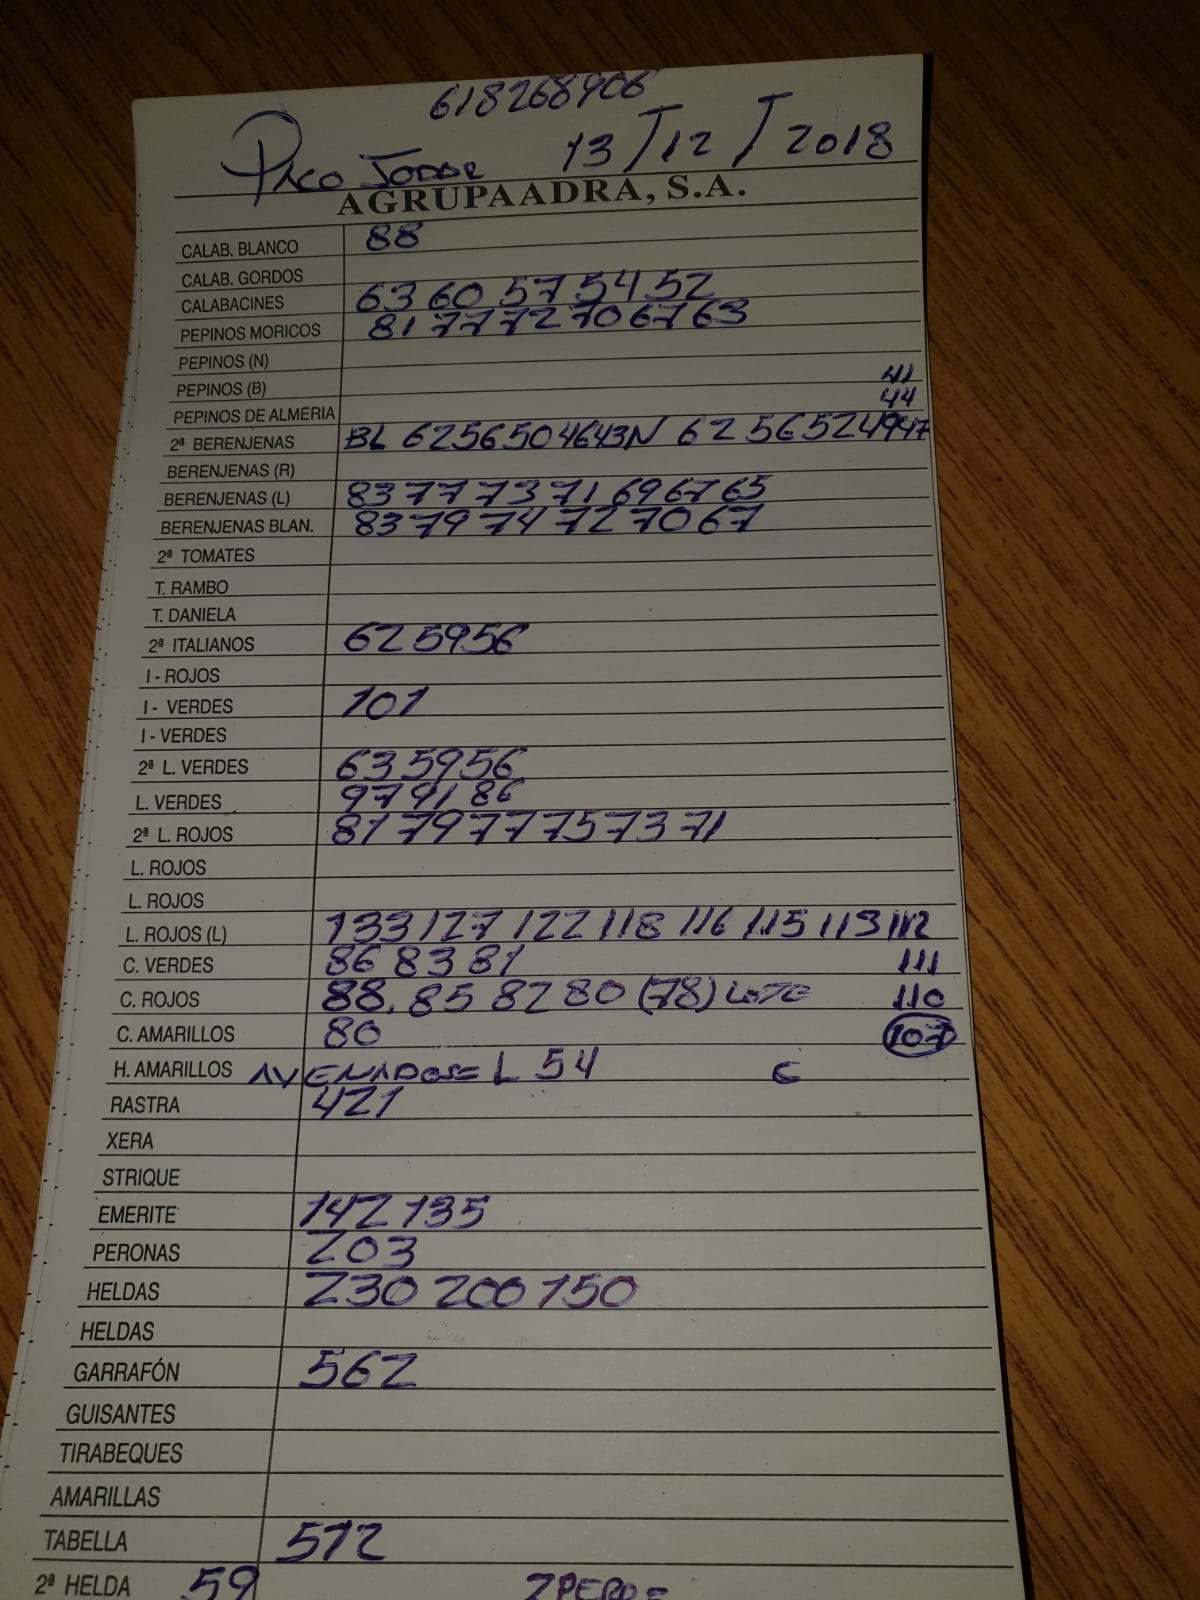 618268906
PACO JODAR 13/12/2018
AGRUPAADRA, S.A.
CALAB. BLANCO 88
CALAB. GORDOS
CALABACINES 63 60 57 54 52
PEPINOS MORICOS 81 77 72 70 67 63
PEPINOS (N)
PEPINOS (B) 41
PEPINOS DE ALMERIA 44
2ª BERENJENAS BL 62 56 50 46 43 N 62 56 52 49 47
BERENJENAS (R)
BERENJENAS (L) 83 77 73 71 69 67 65
BERENJENAS BLAN. 83 79 74 72 70 67
2ª TOMATES
T. RAMBO
T. DANIELA
2ª ITALIANOS 62 59 56
I - ROJOS
I - VERDES 101
I - VERDES
2ª L. VERDES 63 59 56
L. VERDES 97 91 86
2ª L. ROJOS 81 79 77 75 73 71
L. ROJOS
L. ROJOS
L. ROJOS (L) 133 127 122 118 116 115 113 112
C. VERDES 86 83 81 111
C. ROJOS 88. 85 82 80 (78) LOTE 110
C. AMARILLOS 80 107
H. AMARILLOS L 54 6
RASTRA 421
XERA
STRIQUE
EMERITE 142 135
PERONAS 203
HELDAS 230 200 150
HELDAS
GARRAFÓN 562
GUISANTES
TIRABEQUES
AMARILLAS
TABELLA 512
2ª HELDA 59